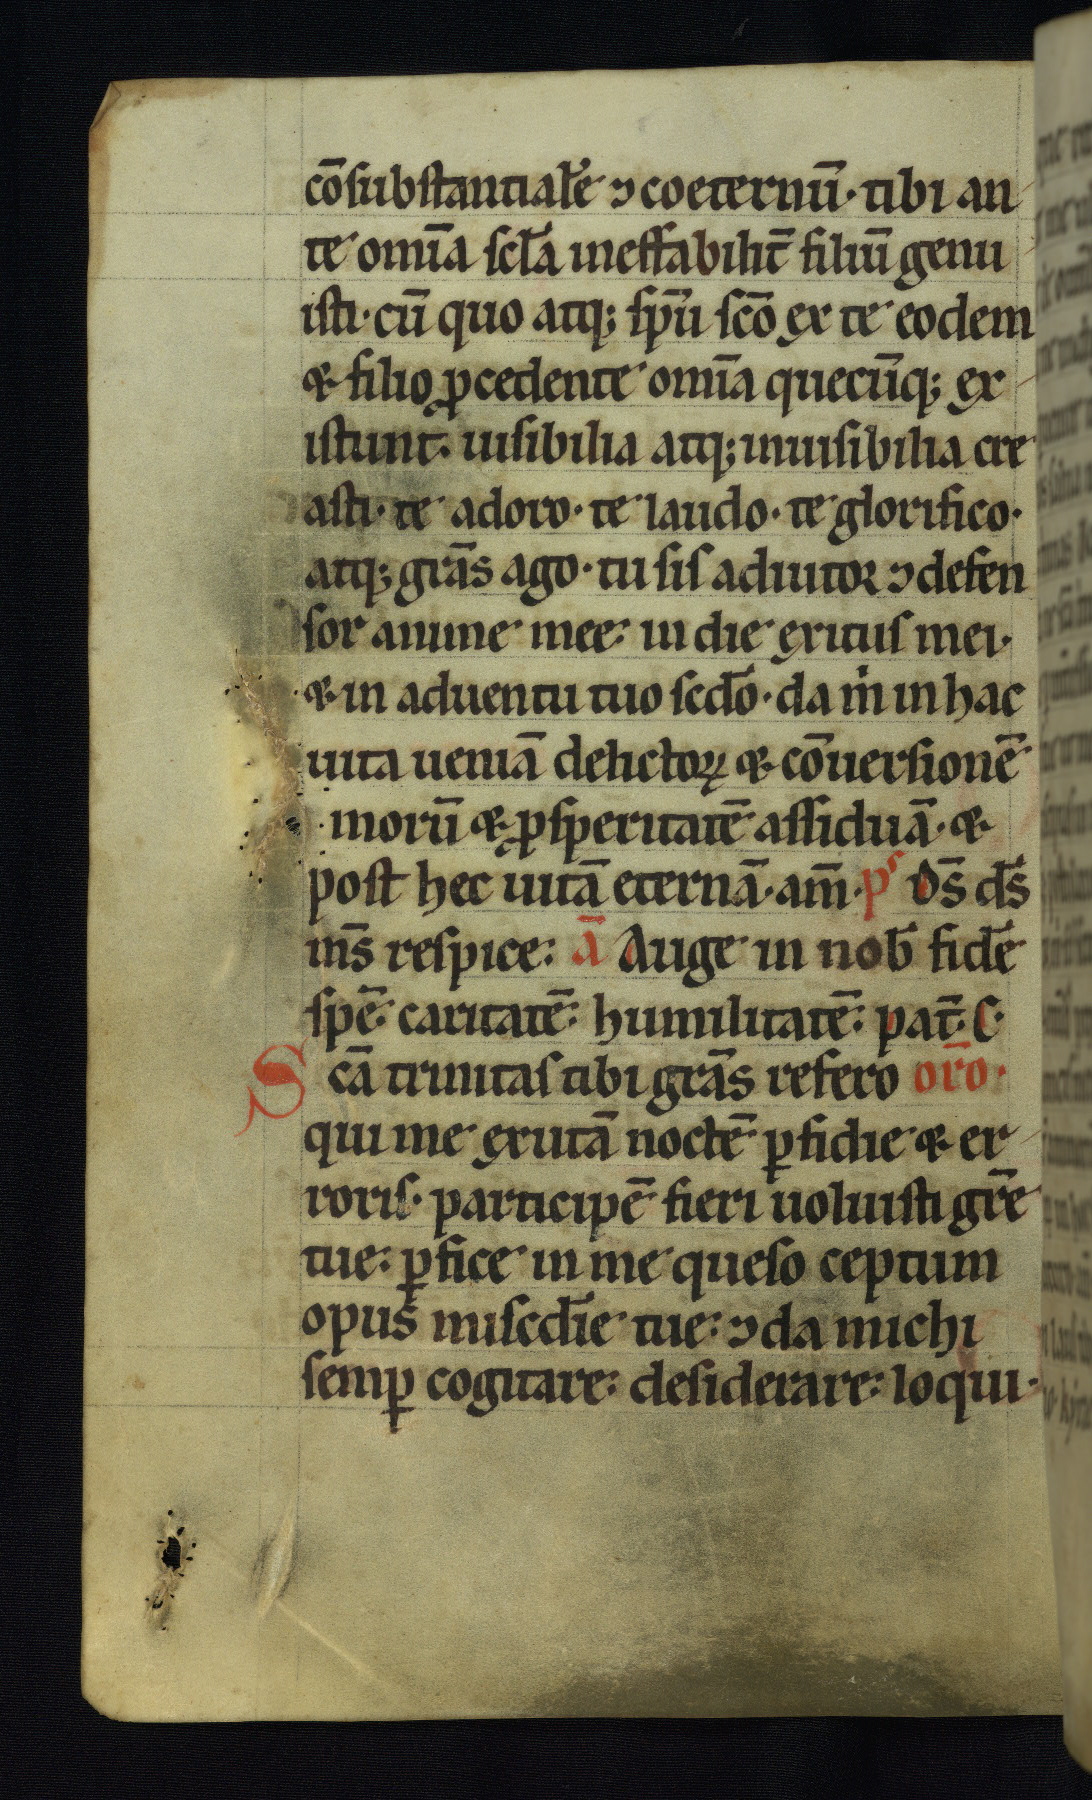 cōſubſtantiał̄e ⁊ coeternū· tibi an
te om̄ia ſcl̄a ineffabilit̄ filiū genu
iſti· cū quo atq; ſp̄u ſcō ex te eodem
& filio ꝓcedente om̄ia quecūq; ex
iſtunt· uiſibilia atq; inuiſibilia cre
aſti· te adoro· te laudo· te glorifico·
atq; grās ago· tu ſiſ adiutoꝛ ⁊ defen
ſor anime mee· in die exituſ mei·
& in aduentu tuo ſcd̄o· da ṁ in hac
uita ueniā delictoꝝ & cōuerſionē
morū & ꝓſperitatē aſſiduā· &
poſt hec uitā eternā· am̄· pˢ D̄s ds̄
m̄s reſpice: ā Auge in nob̄ fidē
ſpē· caritatē: humilitatē: pat̄· C·
Scā trinitaſ tibi grās refero or̄o·
qui me exutā noctē ꝑfidie & er
roriſ· participē fieri uoluiſti gr̄e
tue: ꝑfice in me queſo ceptum
opus miſcd̄ie tue: ⁊ da michi
ſemꝑ cogitare: deſiderare: loqui·